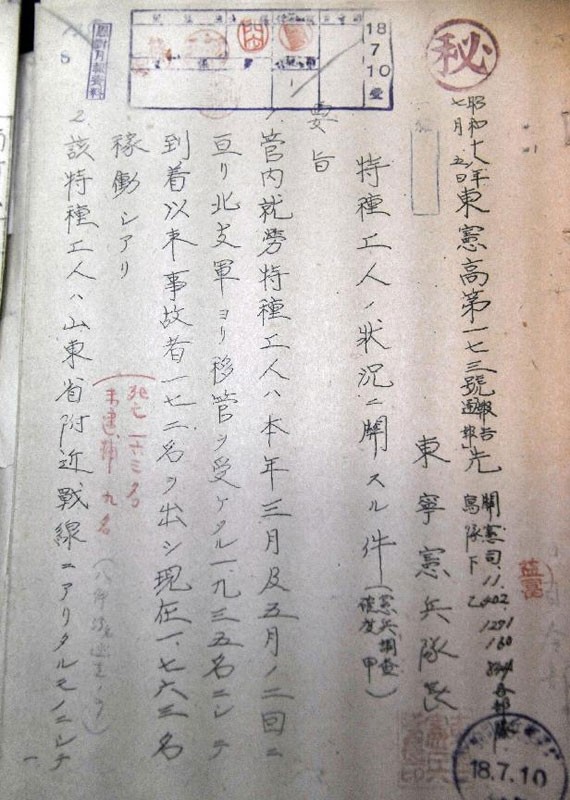 秘
18
7
10
昭和十八年七月五日 東憲高第一七三號 報告通報先
関憲司.11.402.1291
160
各部隊
東寧憲兵隊長
特種工人ノ状況ニ関スル件(憲兵調査 確度甲)
要旨
1.管内就勞特種工人ハ本年三月及五月ノ二回ニ
亘リ北支軍ヨリ移管ヲ受ケタル一、九三五名ニシテ
到着以来事故者一七二名ヲ出シ現在一、七六三名
稼働シアリ
死亡一六三名
未逮捕 九名
2.該特種工人ハ山東省附近戰線ニアリタルモノニシテ
一
18.7.10